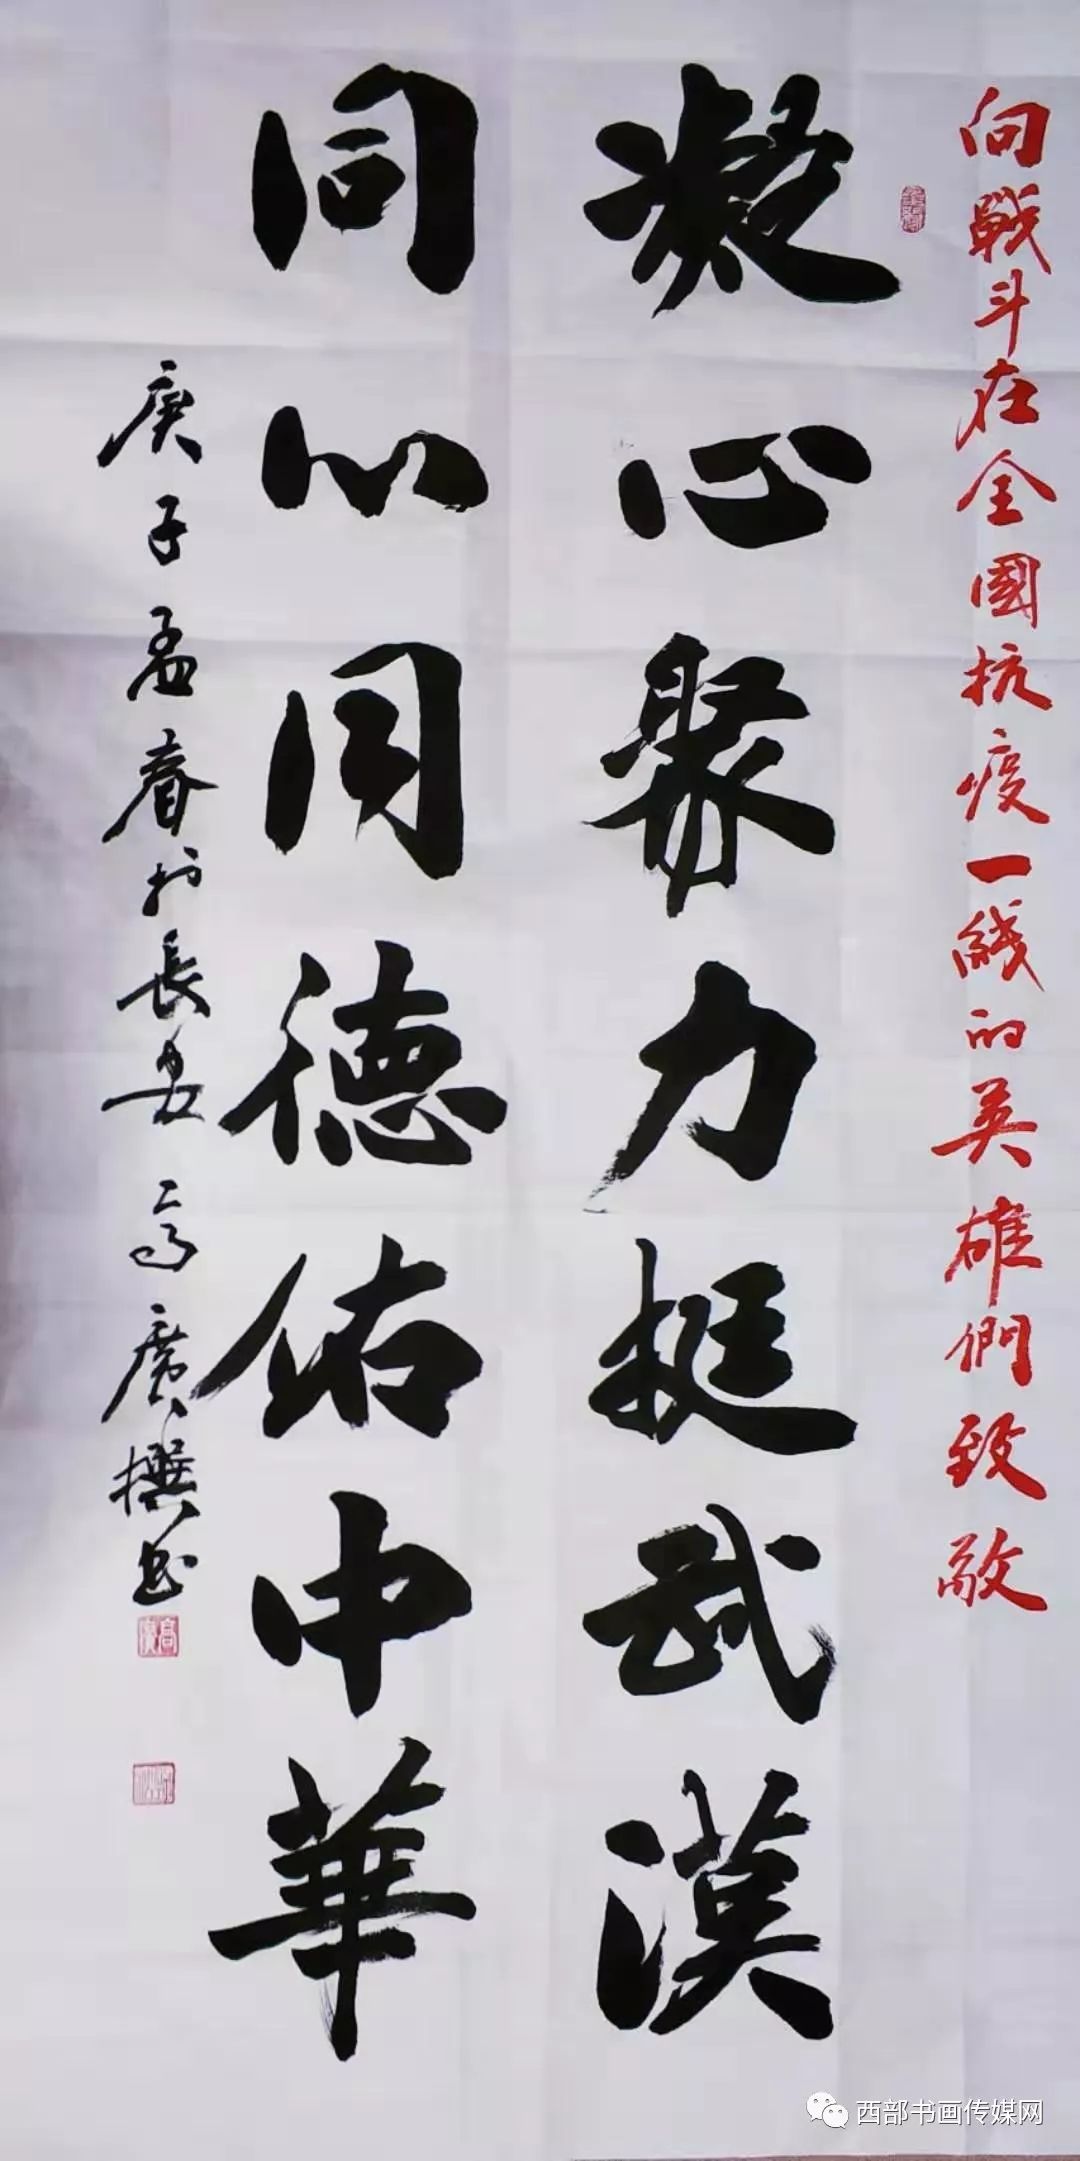 向戰斗在全國抗疫一綫的英雄們致敬
凝心聚力挺武漢
同心同德佑中華
庚子孟春於長安高廣撰书
高廣
西部书画传媒网